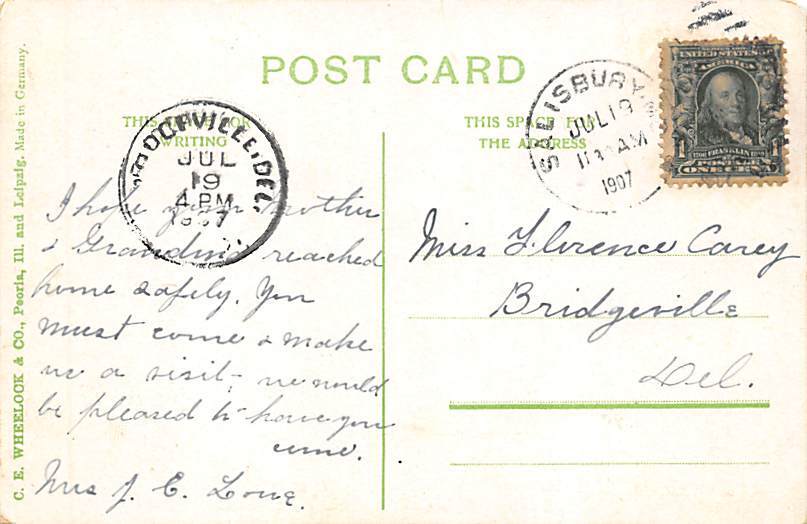 POST CARD
THIS SPACE FOR
WRITING
THIS SPACE FOR
THE ADDRESS
DEL.
JUL
19
4 PM
1907
SALISBURY
JUL 19
AM
1907
UNITED STATES OF
AMERICA
FRANKLIN
1
ONE CENT
I hope your mother
& Grandma reached
home safely. You
must come & make
us a visit; we would
be pleased to have you
come.
Mrs J. C. Long.
Miss Florence Carey
Bridgeville
Del.
C. E. WHEELOCK & CO., Peoria, Ill. and Leipzig. Made in Germany.